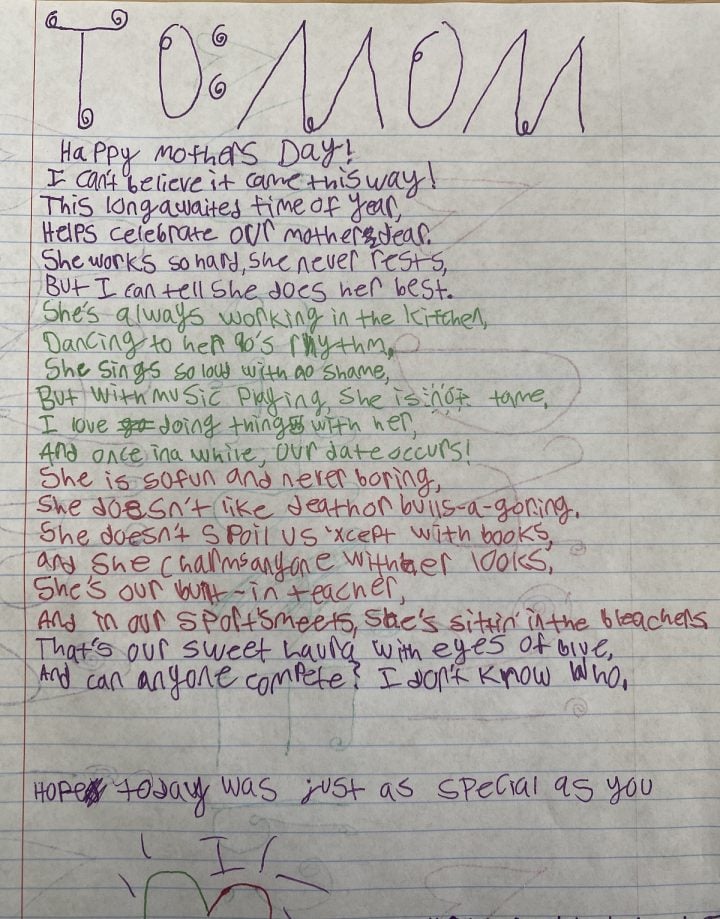 TO: MOM
Happy mothers Day!
I can't believe it came this way!
This long awaited time of year,
Helps celebrate our mothers dear.
She works so hard, she never rests,
But I can tell she does her best.
She's always working in the kitchen,
Dancing to her 90's rhythm,
She sings so loud with no shame,
But with music playing, she is not tame,
I love doing things with her,
And once in a while, our date occurs!
She is so fun and never boring,
She doesn't like death or bulls-a-goring.
She doesn't spoil us 'xcept with books,
and she charms anyone with her looks,
She's our built-in teacher,
And in our sports meets, she's sittin' in the bleachers
That's our sweet Laura with eyes of blue,
And can anyone compete? I don't know who.
Hope today was just as special as you